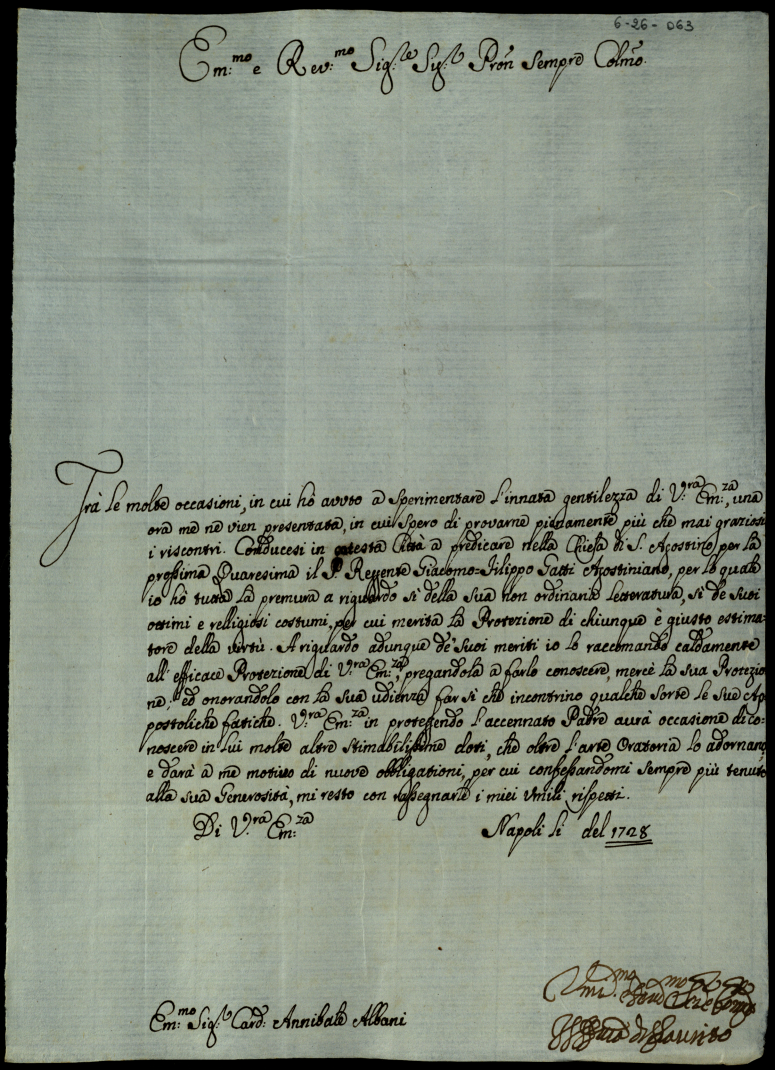 6-26-063
Em:mo e Rev:mo Sig:re Sig:re Pron Sempre Colmo.
Trà le molte occasioni, in cui hò avuto a sperimentare l'innata gentilezza di V:ra Em:za, una
ora me ne vien presentata, in cui spero di provarne pienamente più che mai graziosi
i riscontri. Conducesi in cotesta Città a predicare nella Chiesa di S. Agostino per la
prossima Quaresima il P. Reggente Giacomo-Filippo Gatti Agostiniano, per lo quale
io hò tutta la premura a riguardo sì della sua non ordinaria Letteratura, sì de suoi
ottimi e relligiosi costumi, per cui merita la Protezione di chiunque è giusto estima-
tore della virtù. A riguardo adunque de' suoi meriti io lo raccomando caldamente
all'efficace Protezione di V:ra Em:za, pregandola a farlo conoscere, mercè la sua Protezio
ne: ed onorandolo con la sua udienza far sì che incontrino qualche sorte le sue Ap
postoliche fatiche. V:ra Em:za in protegendo l'accennato Padre aurà occasione di co-
noscere in lui molte altre stimabilissime doti, che oltre l'arte Oratoria lo adornano
e darà a me motivo di nuove obbligationi, per cui confessandomi sempre più tenuto
alla sua Generosità, mi resto con rassegnarle i miei umili rispetti.
Di V:ra Em:za Napoli li del 1728
Em:mo Sig:r Card: Annibale Albani